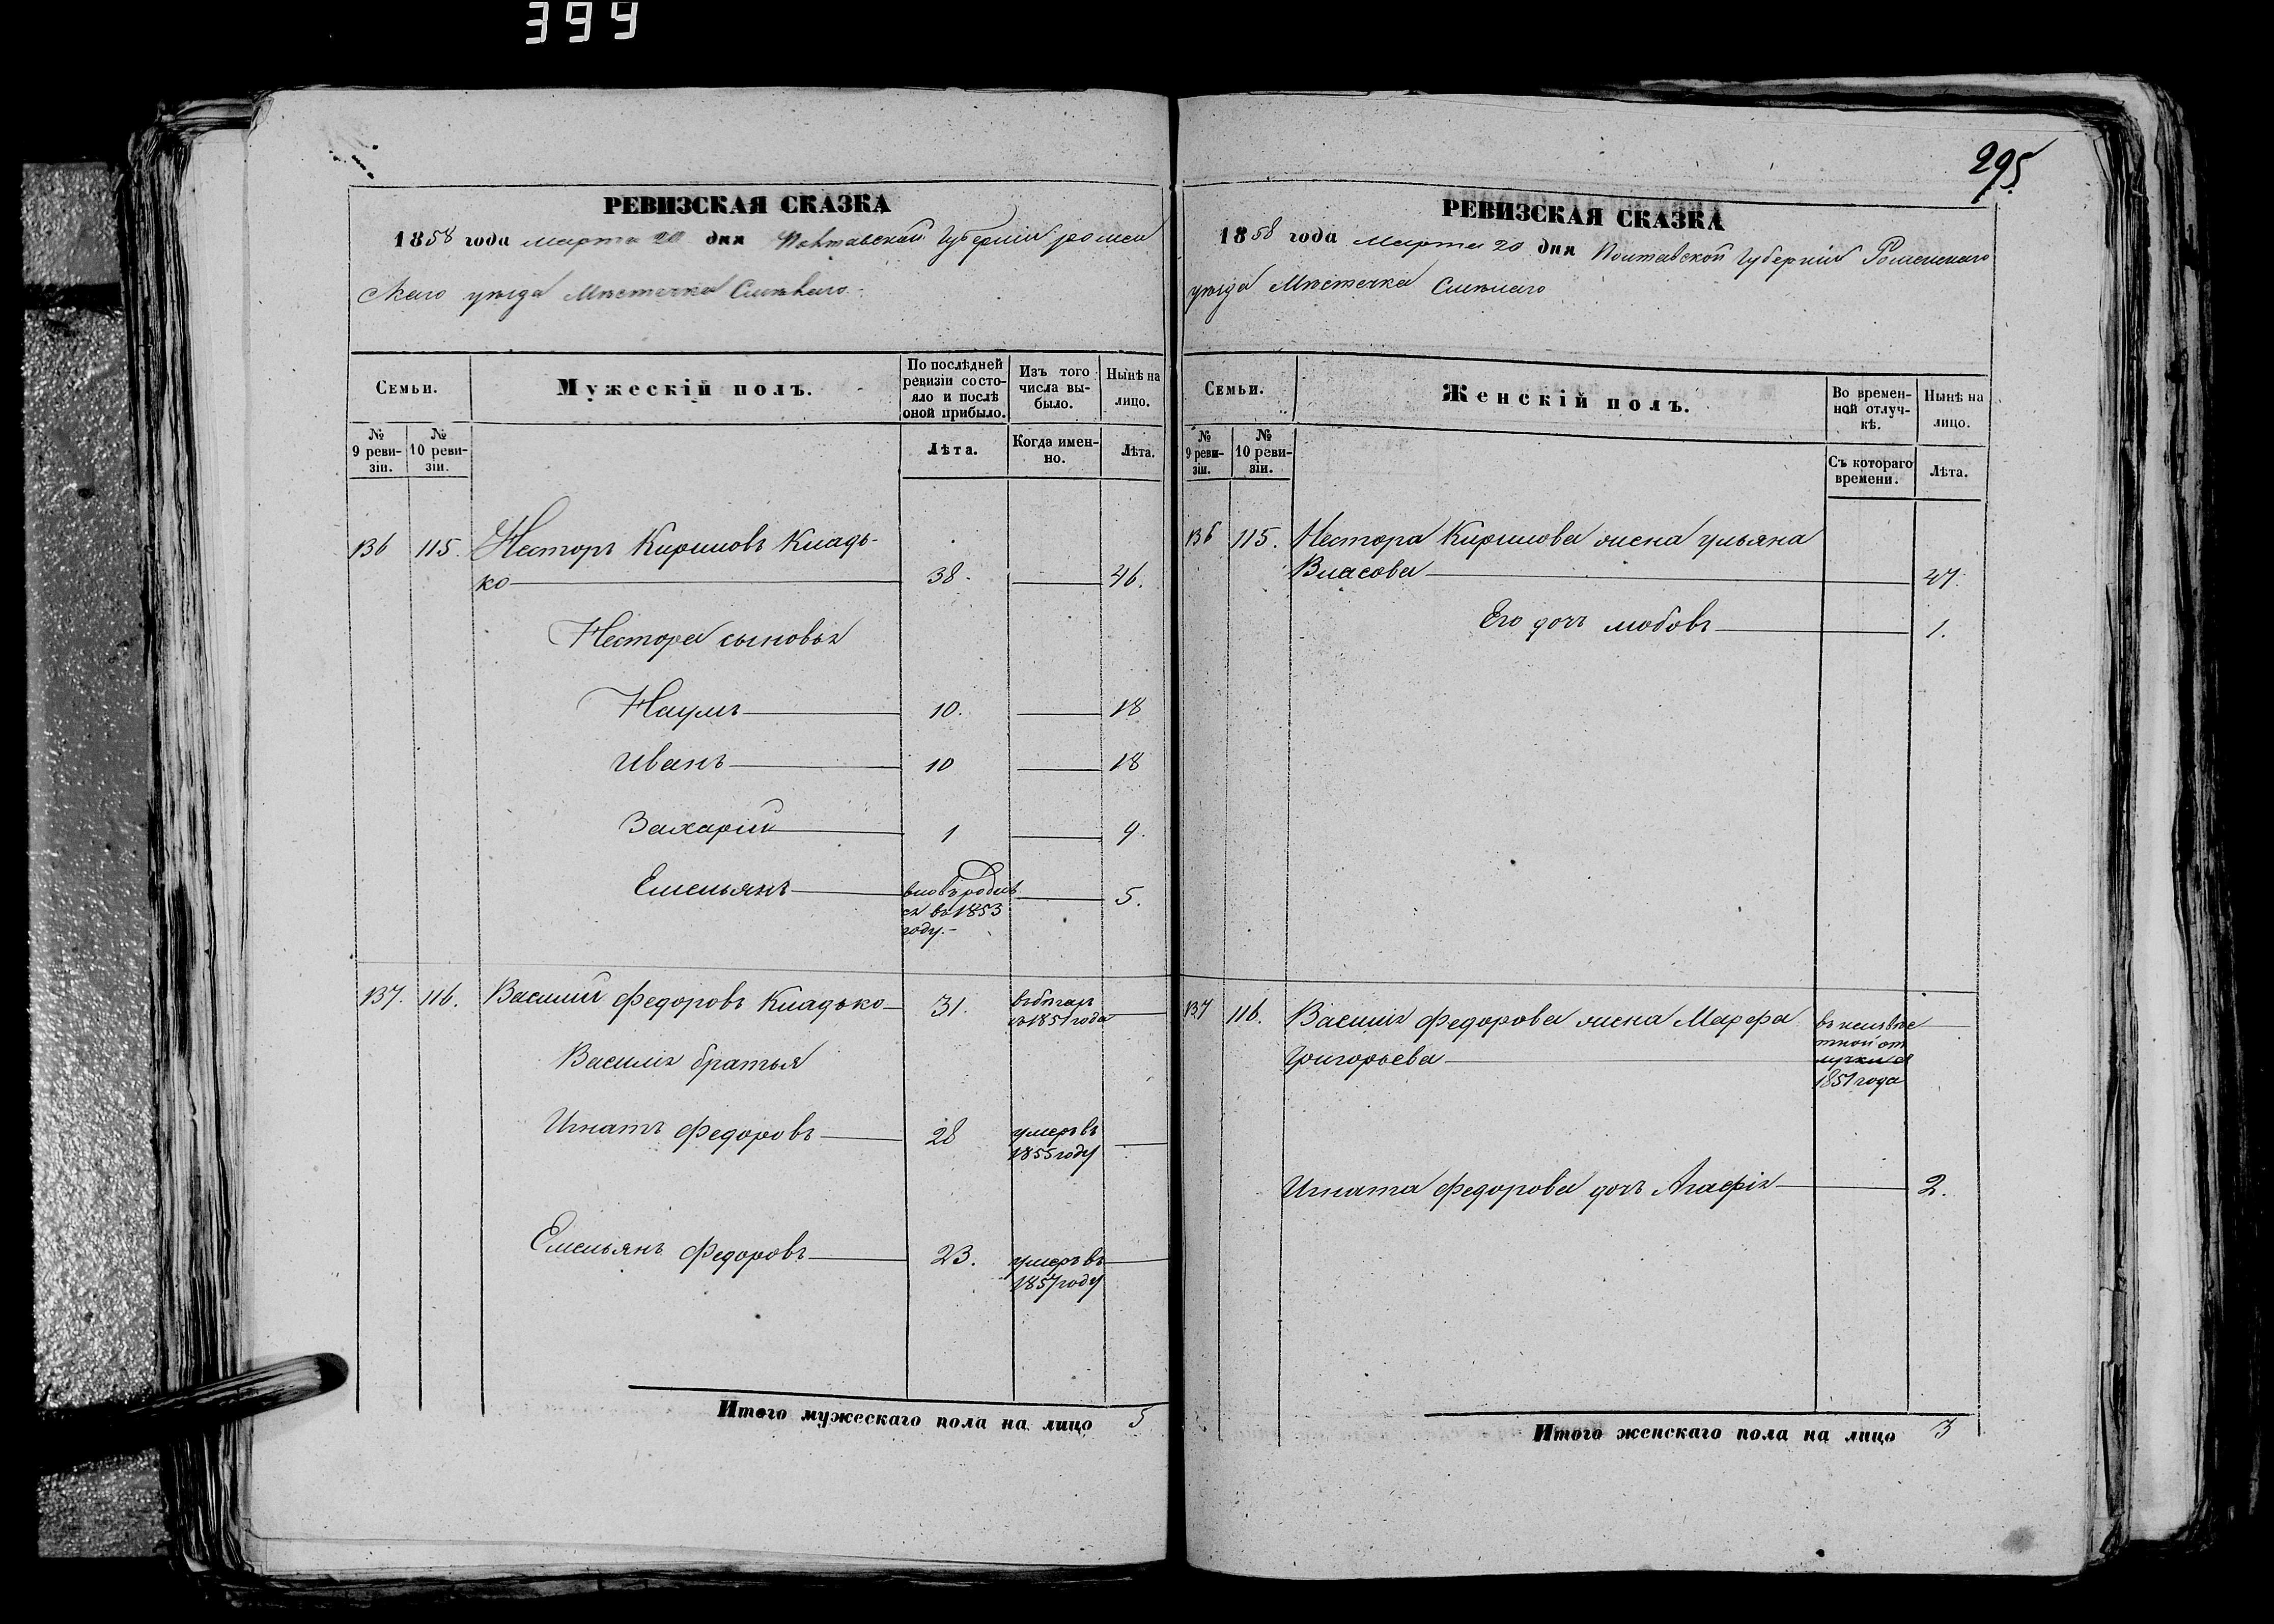 399
295
РЕВИЗСКАЯ СКАЗКА
1858 года марта 20 дня Полтавской Губерніи ромен
скаго уѣзда Мѣстечка Смѣлаго
Семьи.
Мужескій полъ.
По послѣдней ревизіи состояло и послѣ оной прибыло.
Изъ того числа выбыло.
Нынѣ на лицо.
№ 9 ревизіи.
№ 10 ревизіи.
Лѣта.
Когда именно.
Лѣта.
136 115. Несторъ Кириловъ Кладь-
ко 38. 46.
Нестора сыновья
Наумъ 10. 18
Иванъ 10 18
Захарий 1 9.
Емельянъ вновь родил 5.
ся въ 1853
году.
137. 116. Василий Федоровъ Кладько 31. въ бегахъ
съ 1851 года
Василія братья
Игнатъ Федоровъ 28 умеръ въ
1855 году
Емельянъ Федоровъ 23. умеръ въ
1857 году
Итого мужескаго пола на лицо 5
РЕВИЗСКАЯ СКАЗКА
1858 года Марта 20 дня Полтавской Губерніи Роменскаго
уѣзда Мѣстечка Смѣлаго
Семьи.
Женскій полъ.
Во временной отлучкѣ.
Нынѣ на лицо.
№ 9 ревизіи.
№ 10 ревизіи.
Съ котораго времени.
Лѣта.
136 115. Нестора Кирилова жена ульяна
Власова 47.
Его дочь любовь 1.
137 116. Василія Федорова жена Марфа въ неизвѣс
Григорьева тной от
лучки съ
1851 года
Игната Федорова дочь Агафія 2.
Итого женскаго пола на лицо 3